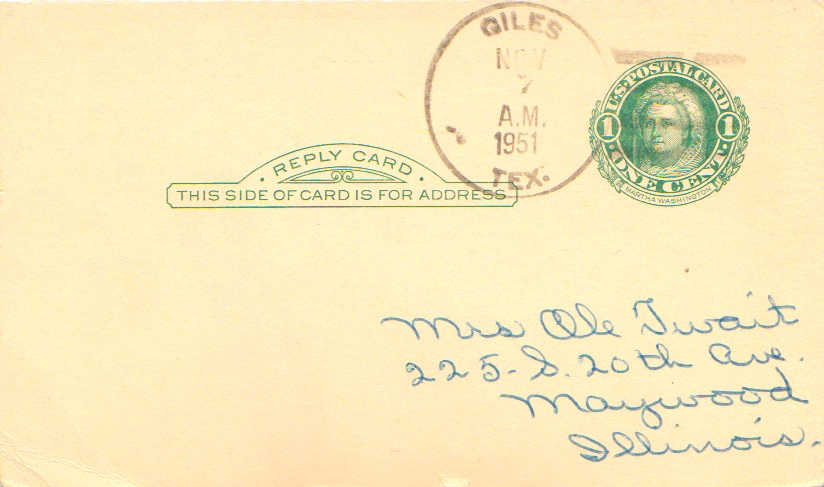 GILES
NOV
7
A.M.
1951
TEX.
U.S. POSTAL CARD
1 1
· ONE CENT ·
MARTHA WASHINGTON
· REPLY CARD ·
THIS SIDE OF CARD IS FOR ADDRESS
Mrs Ole Twait
225-S. 20th Ave.
Maywood
Illinois.